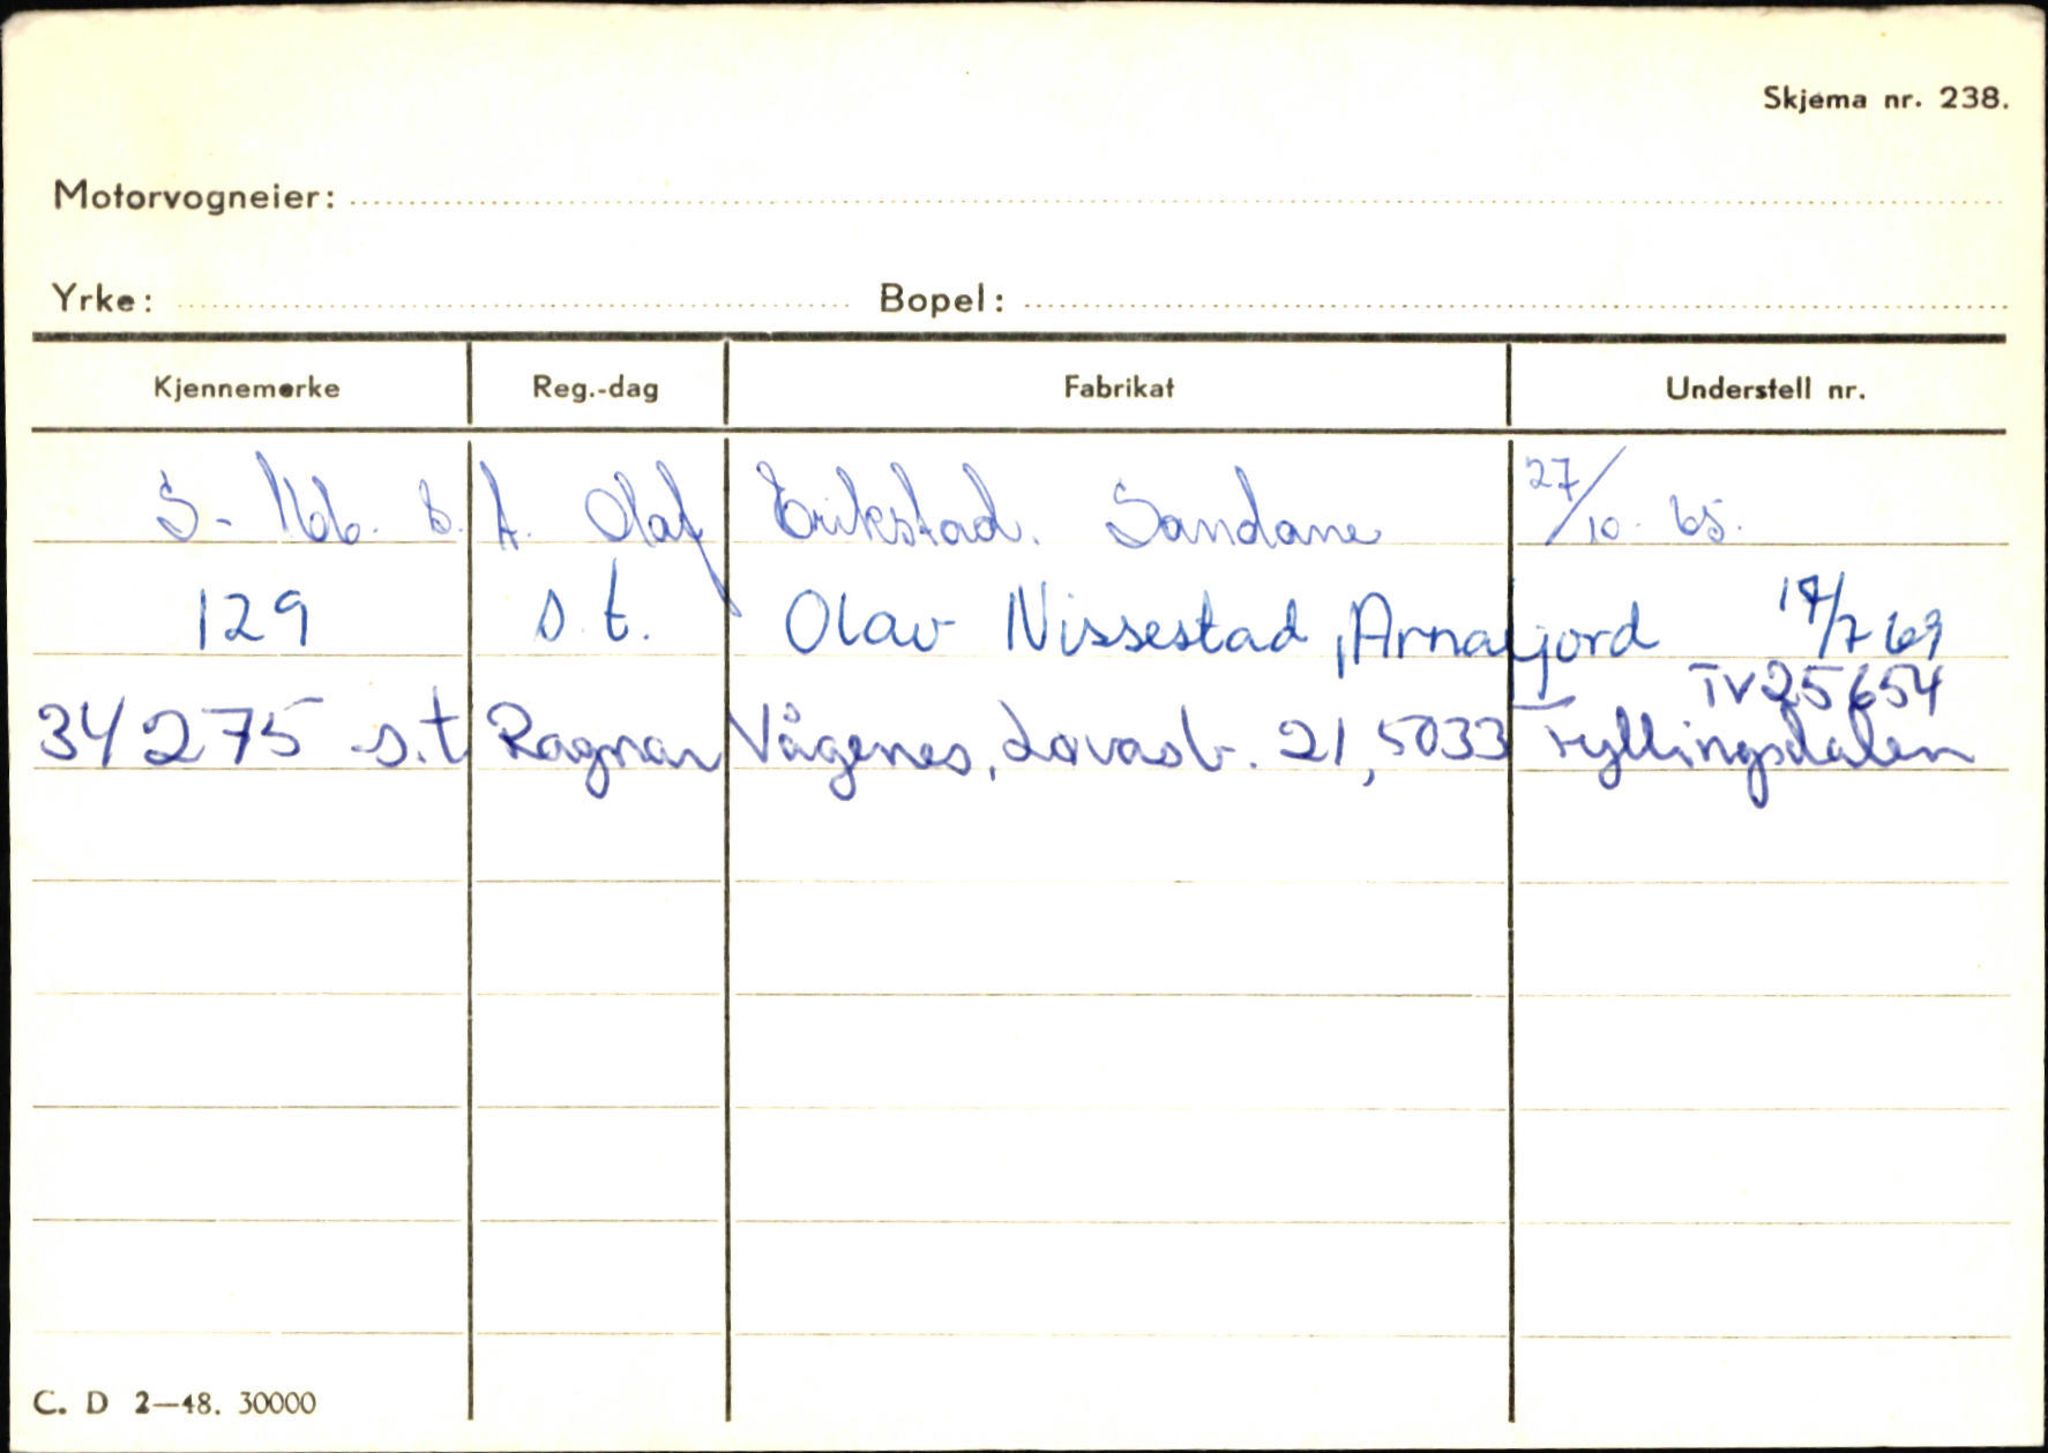 Skjema nr. 238.
Motorvogneier:
Yrke: Bopel:
Kjennemerke Reg.-dag Fabrikat Understell nr.
S- 166. s. t. Olaf Erikstad. Sandane 27/10-65.
129 s.t. Olav Nissestad, Arnafjord /7 69
TV25654
34275 s.t Ragnar Vågenes, 21, 5033 Fyllingsdalen
C. D 2—48. 30000